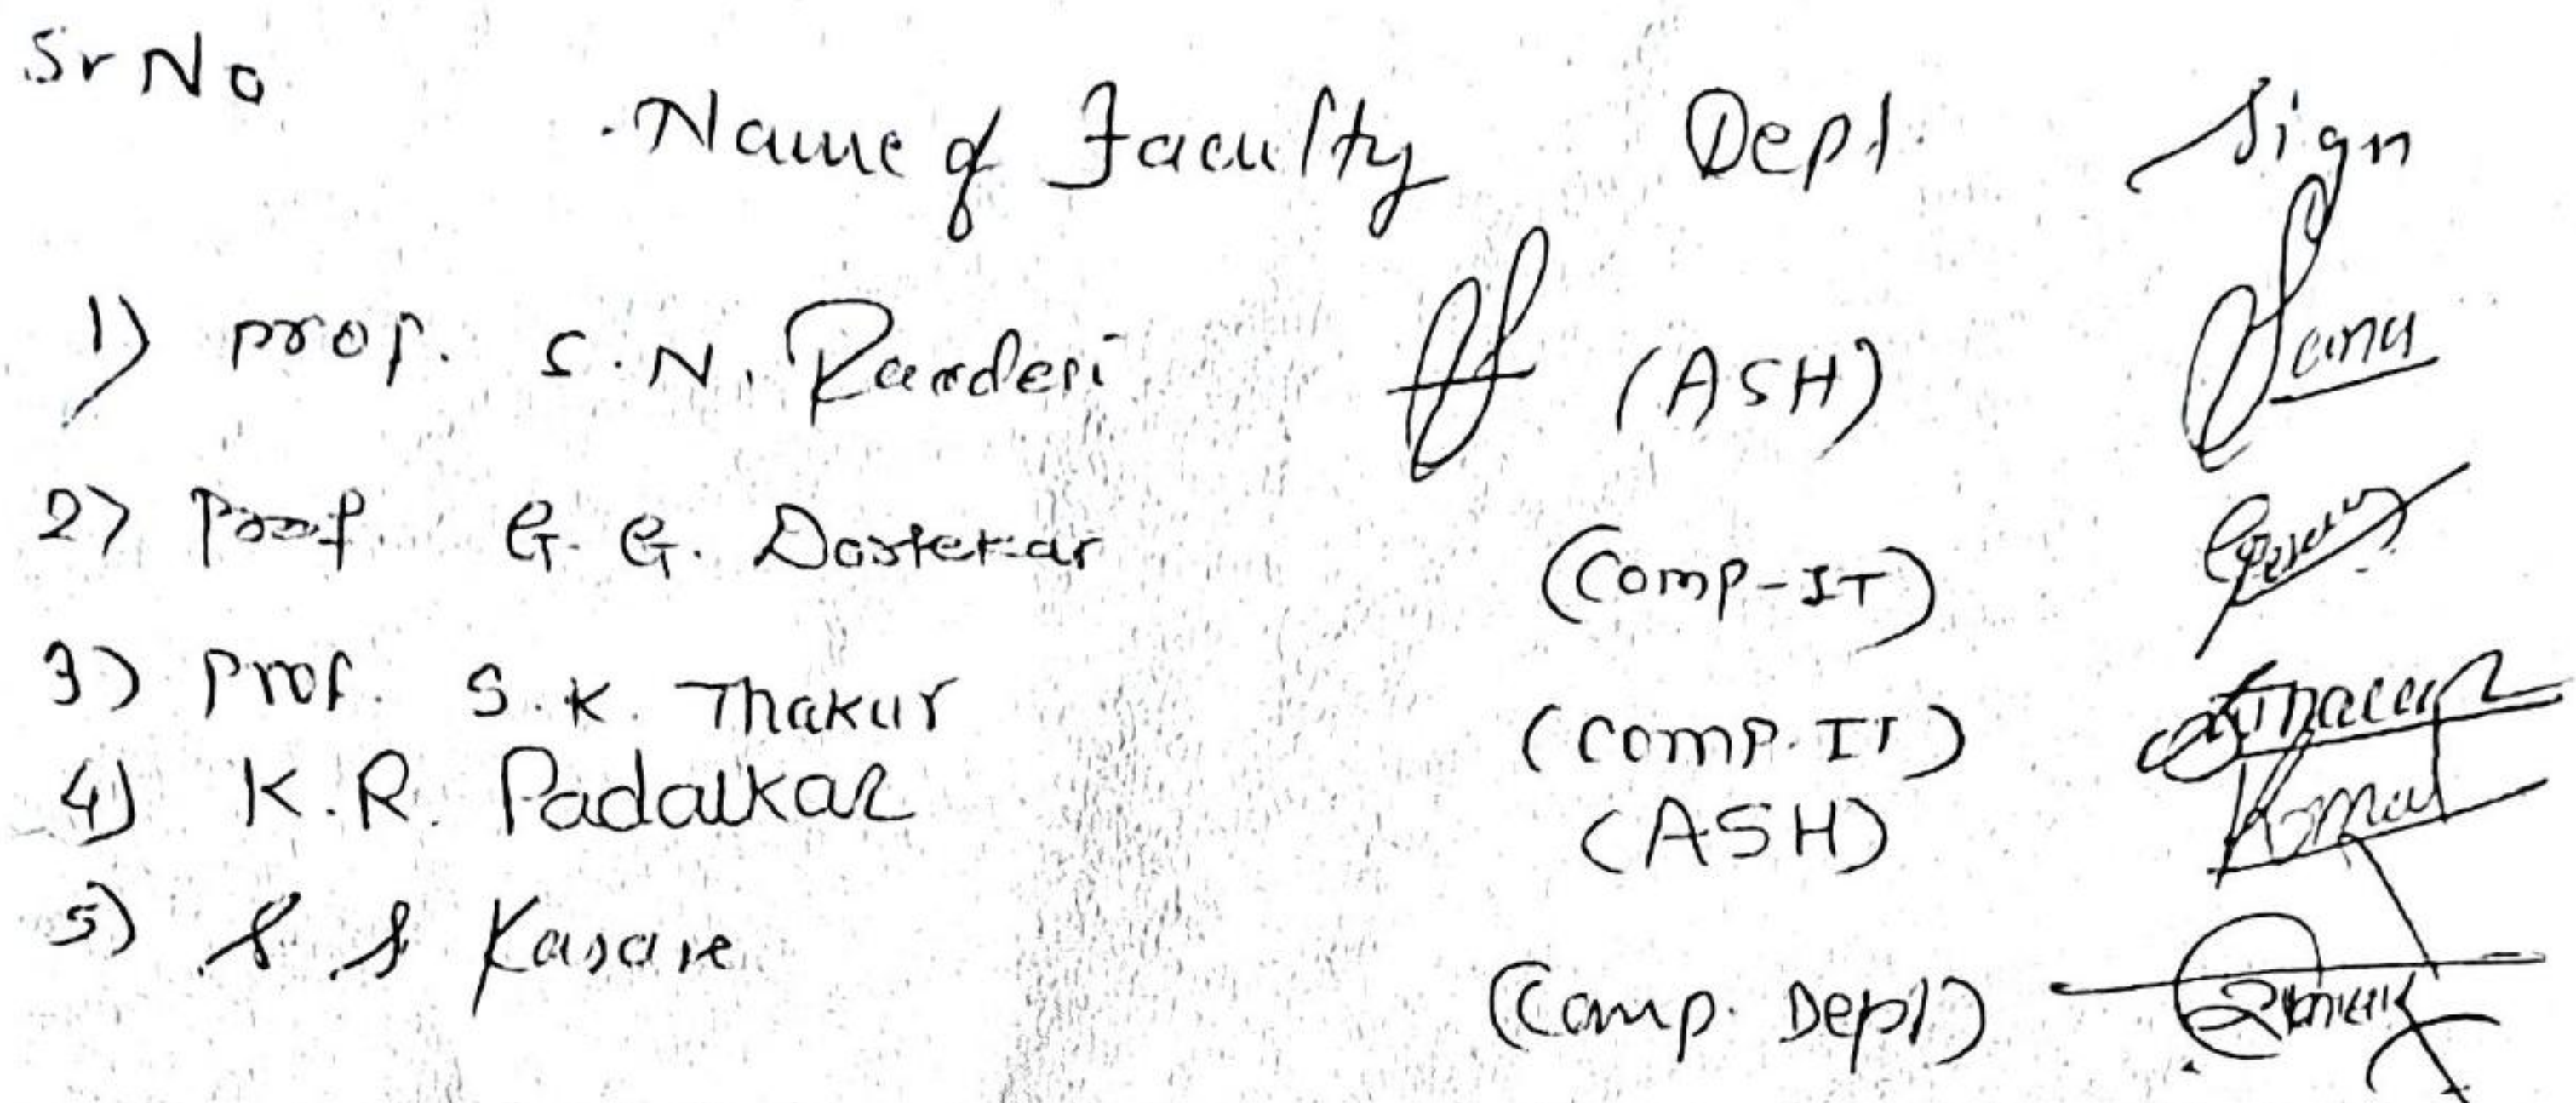 Sr No Name of Faculty Dept. Sign
1) prof. S. N. (ASH)
2) Prof. G. G. (Comp-IT)
3) Prof. S. K. Thakur (Comp. IT)
4) K. R. Padalkar (ASH)
5) S. S Kasare (Comp. Dept)